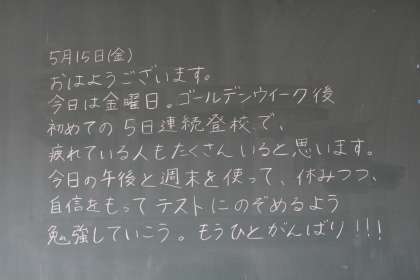 5月15日(金)
おはようございます。
今日は金曜日。ゴールデンウイーク後
初めての5日連続登校で、
疲れている人もたくさんいると思います。
今日の午後と週末を使って、休みつつ、
自信をもってテストにのぞめるよう
勉強していこう。もうひとがんばり!!!